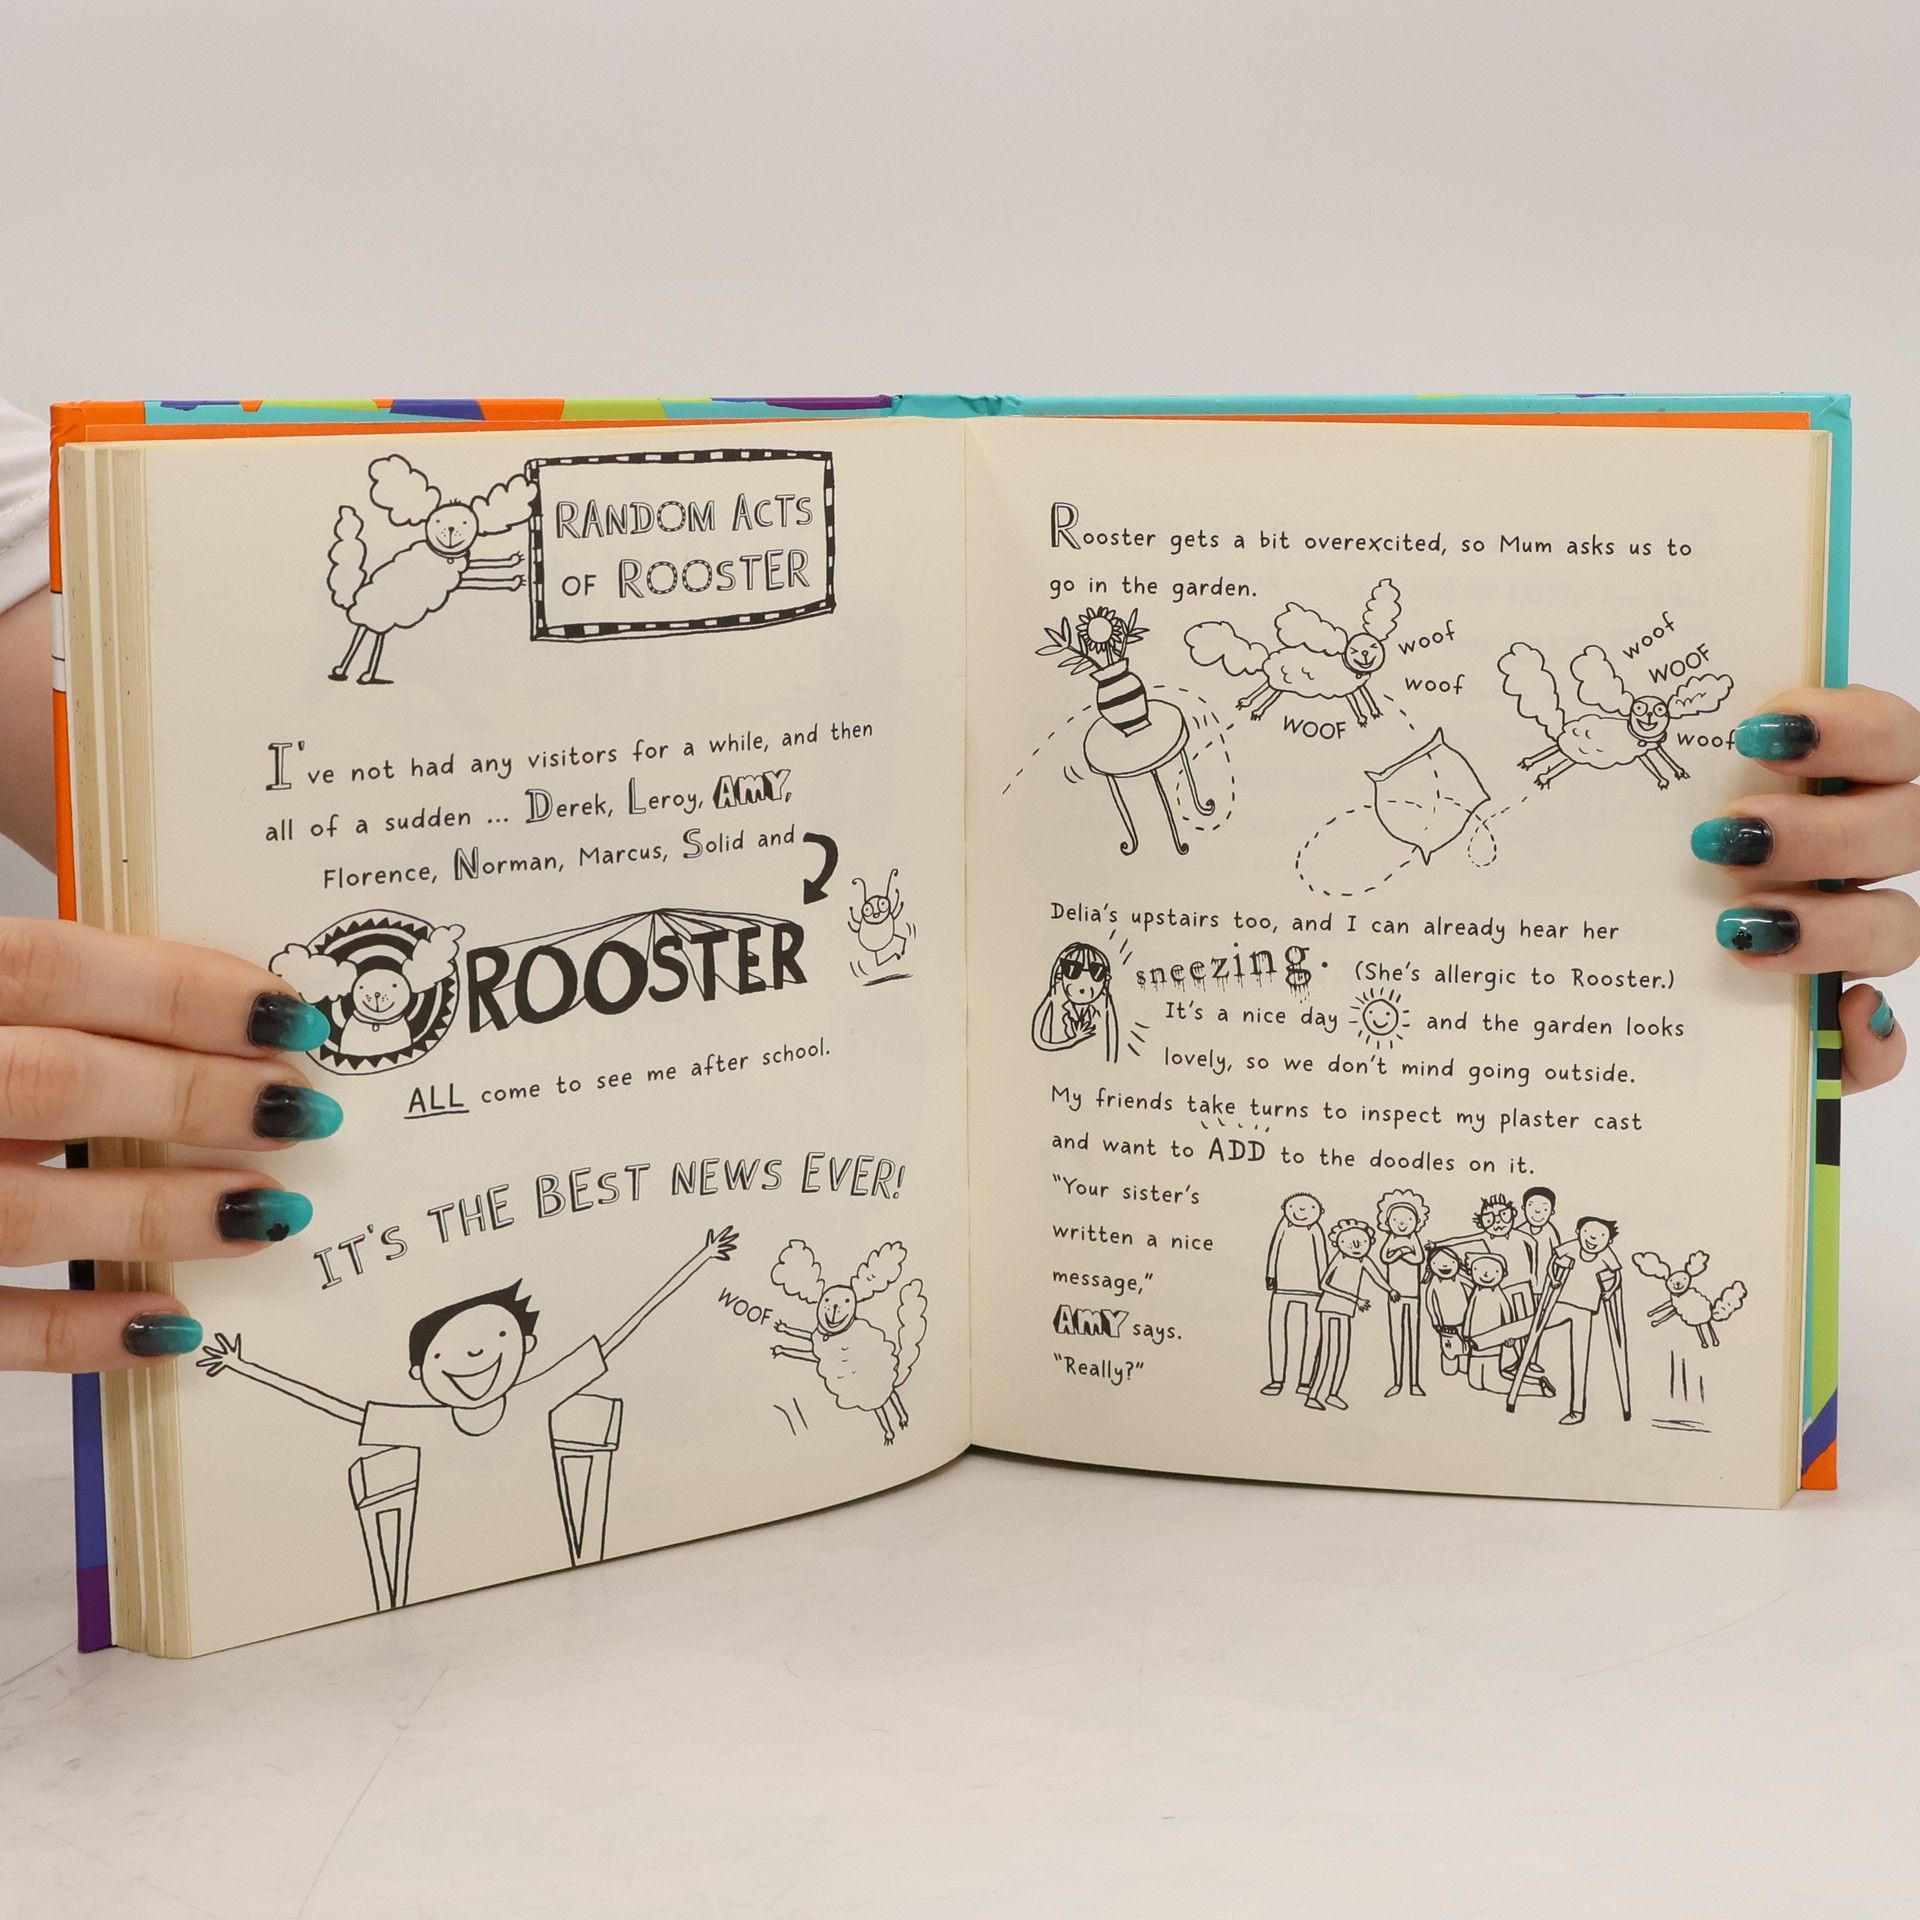 RANDOM ACTS
OF ROOSTER
I've not had any visitors for a while, and then
all of a sudden ... Derek, Leroy, AMY,
Florence, Norman, Marcus, Solid and
ROOSTER
ALL come to see me after school.
IT'S THE BEST NEWS EVER!
WOOF
Rooster gets a bit overexcited, so Mum asks us to
go in the garden.
woof
woof
WOOF
woof
WOOF
woof
Delia's upstairs too, and I can already hear her
sneezing. (She's allergic to Rooster.)
It's a nice day and the garden looks
lovely, so we don't mind going outside.
My friends take turns to inspect my plaster cast
and want to ADD to the doodles on it.
"Your sister's
written a nice
message,"
AMY says.
"Really?"